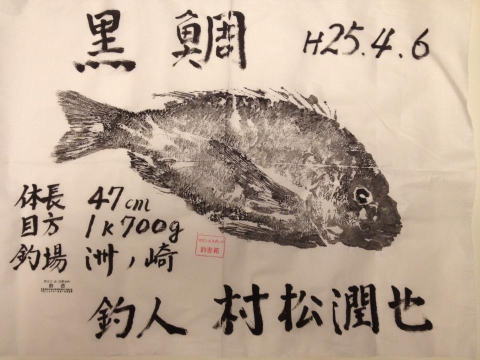 黒鯛 H25.4.6
体長 47cm
目方 1K700g
釣場 洲ノ崎
釣人 村松潤也